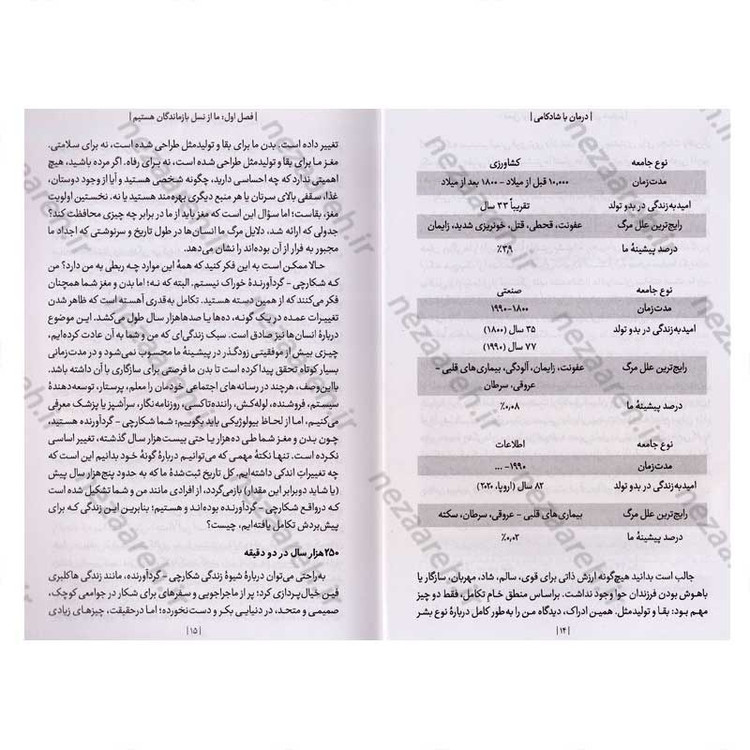 | درمان با شادکامی |
نوع جامعه کشاورزی
مدت‌زمان ۱۰,۰۰۰ قبل از میلاد - ۱۸۰۰ بعد از میلاد
امیدبه‌زندگی در بدو تولد تقریباً ۳۳ سال
رایج‌ترین علل مرگ عفونت، قحطی، قتل، خونریزی شدید، زایمان
درصد پیشینهٔ ما ٪۳٫۹
نوع جامعه صنعتی
مدت‌زمان ۱۸۰۰-۱۹۹۰
امیدبه‌زندگی در بدو تولد ۳۵ سال (۱۸۰۰)
۷۷ سال (۱۹۹۰)
رایج‌ترین علل مرگ عفونت، زایمان، آلودگی، بیماری‌های قلبی -
عروقی، سرطان
درصد پیشینهٔ ما ٪۰٫۰۸
نوع جامعه اطلاعات
مدت‌زمان ۱۹۹۰- ...
امیدبه‌زندگی در بدو تولد ۸۲ سال (اروپا، ۲۰۲۰)
رایج‌ترین علل مرگ بیماری‌های قلبی - عروقی، سرطان، سکته
درصد پیشینهٔ ما ٪۰٫۰۲
جالب است بدانید هیچ‌گونه ارزش ذاتی برای قوی، سالم، شاد، مهربان، سازگار یا
باهوش بودن فرزندان حوا وجود نداشت. براساس منطق خامِ تکامل، فقط دو چیز
مهم بود: بقا و تولیدمثل. همین ادراک، دیدگاه من را به‌طور کامل دربارهٔ نوع بشر
| ۱۴ |
| فصل اول: ما از نسل بازماندگان هستیم |
تغییر داده است. بدن ما برای بقا و تولیدمثل طراحی شده است، نه برای سلامتی.
مغز ما برای بقا و تولیدمثل طراحی شده است، نه برای رفاه. اگر مرده باشید، هیچ
اهمیتی ندارد که چه احساسی دارید، چگونه شخصی هستید و آیا از وجود دوستان،
غذا، سقفی بالای سرتان یا هر منبع دیگری بهره‌مند هستید یا نه. نخستین اولویت
مغز، بقاست؛ اما سؤال این است که مغز باید از ما در برابر چه چیزی محافظت کند؟
جدولی که ارائه شد، دلایل مرگ ما انسان‌ها در طول تاریخ و سرنوشتی که اجداد ما
مجبور به فرار از آن بوده‌اند را نشان می‌دهد.
حالا ممکن است به این فکر کنید که همهٔ این موارد چه ربطی به من دارد؟ من
که شکارچی - گردآورندهٔ خوراک نیستم. البته که نه؛ اما بدن و مغز شما همچنان
فکر می‌کنند که از همین دسته هستید. تکامل به‌قدری آهسته است که ظاهر شدن
تغییرات عمده در یک گونه، ده‌ها یا صدهاهزار سال طول می‌کشد. این موضوع
دربارهٔ انسان‌ها نیز صادق است. سبک زندگی‌ای که من و شما به آن عادت کرده‌ایم،
چیزی بیش از موفقیتی زودگذر در پیشینهٔ ما محسوب نمی‌شود و در مدت‌زمانی
بسیار کوتاه تحقق پیدا کرده است تا بدن ما فرصتی برای سازگاری با آن داشته باشد.
بااین‌وصف، هرچند در رسانه‌های اجتماعی خودمان را معلم، پرستار، توسعه‌دهندهٔ
سیستم، فروشنده، لوله‌کش، راننده‌تاکسی، روزنامه‌نگار، سرآشپز یا پزشک معرفی
می‌کنیم، اما از لحاظ بیولوژیکی باید بگوییم: شما شکارچی - گردآورنده هستید،
چون بدن و مغز شما طی ده‌هزار یا حتی بیست‌هزار سال گذشته، تغییر اساسی
نکرده است. تنها نکتهٔ مهمی که می‌توانیم دربارهٔ گونهٔ خود بدانیم این است که
چه تغییراتِ اندکی داشته‌ایم. کل تاریخ ثبت‌شدهٔ ما که به حدود پنج‌هزار سال پیش
(یا شاید دوبرابر این مقدار) بازمی‌گردد، از افرادی مانند من و شما تشکیل شده است
که درواقع شکارچی - گردآورنده بوده‌اند و هستیم؛ بنابراین این زندگی که برای
پیش‌بردش تکامل یافته‌ایم، چیست؟
۲۵۰هزار سال در دو دقیقه
به‌راحتی می‌توان دربارهٔ شیوهٔ زندگی شکارچی - گردآورنده، مانند زندگی هاکلبری
فین خیال‌پردازی کرد؛ پر از ماجراجویی و سفرهای برای شکار در جوامعی کوچک،
صمیمی و متحد، در دنیایی بکر و دست نخورده؛ اما درحقیقت، چیزهای زیادی
| ۱۵ |
nezaareh.ir